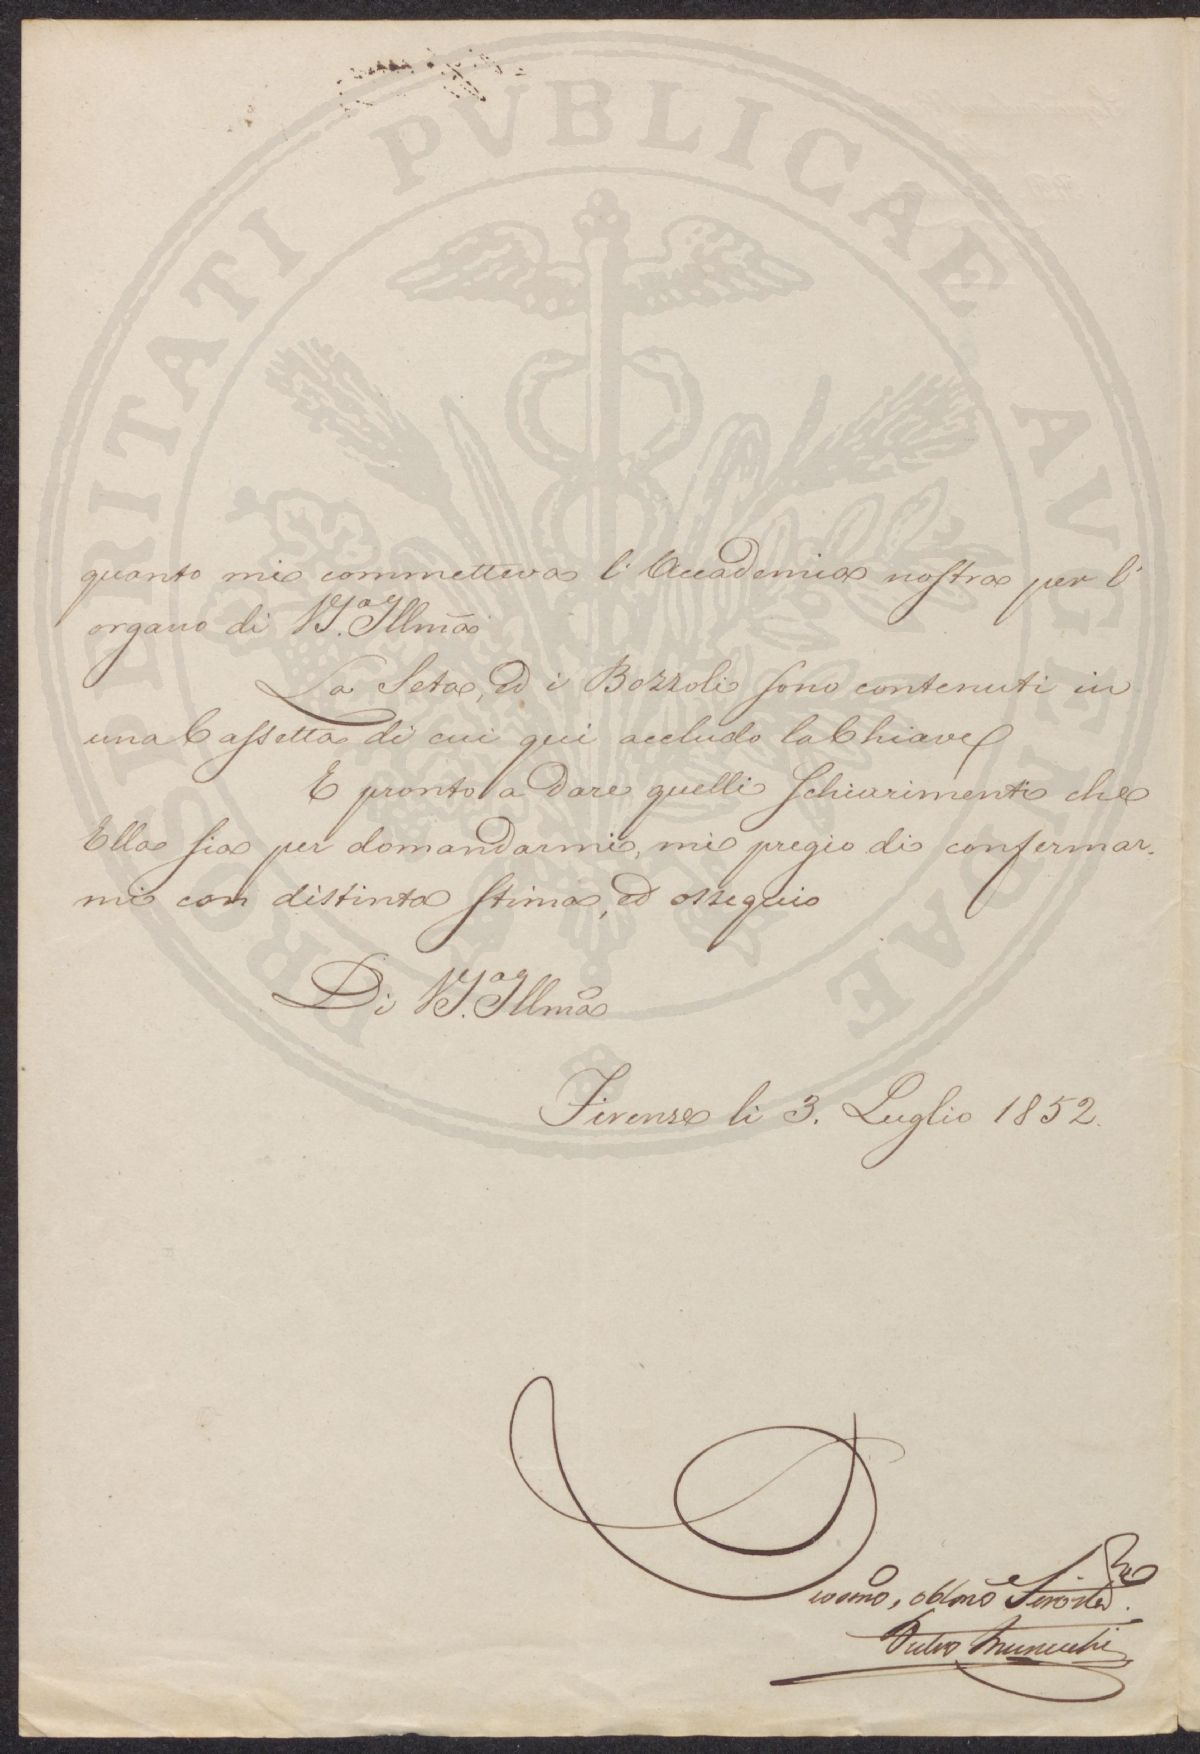 PROSPERITATI PVBLICAE AVGENDAE
quanto mi commetteva l'Accademia nostra per l'
organo di V.S.a Illm̃a
La Seta, ed i Bozzoli sono contenuti in
una Cassetta di cui qui accludo la Chiave
E pronto a dare quelli schiarimenti che
Ella sia per domandarmi, mi pregio di confermar-
mi con distinta stima, ed ossequio
Di V.S.a Illma
Firenze li 3. Luglio 1852.